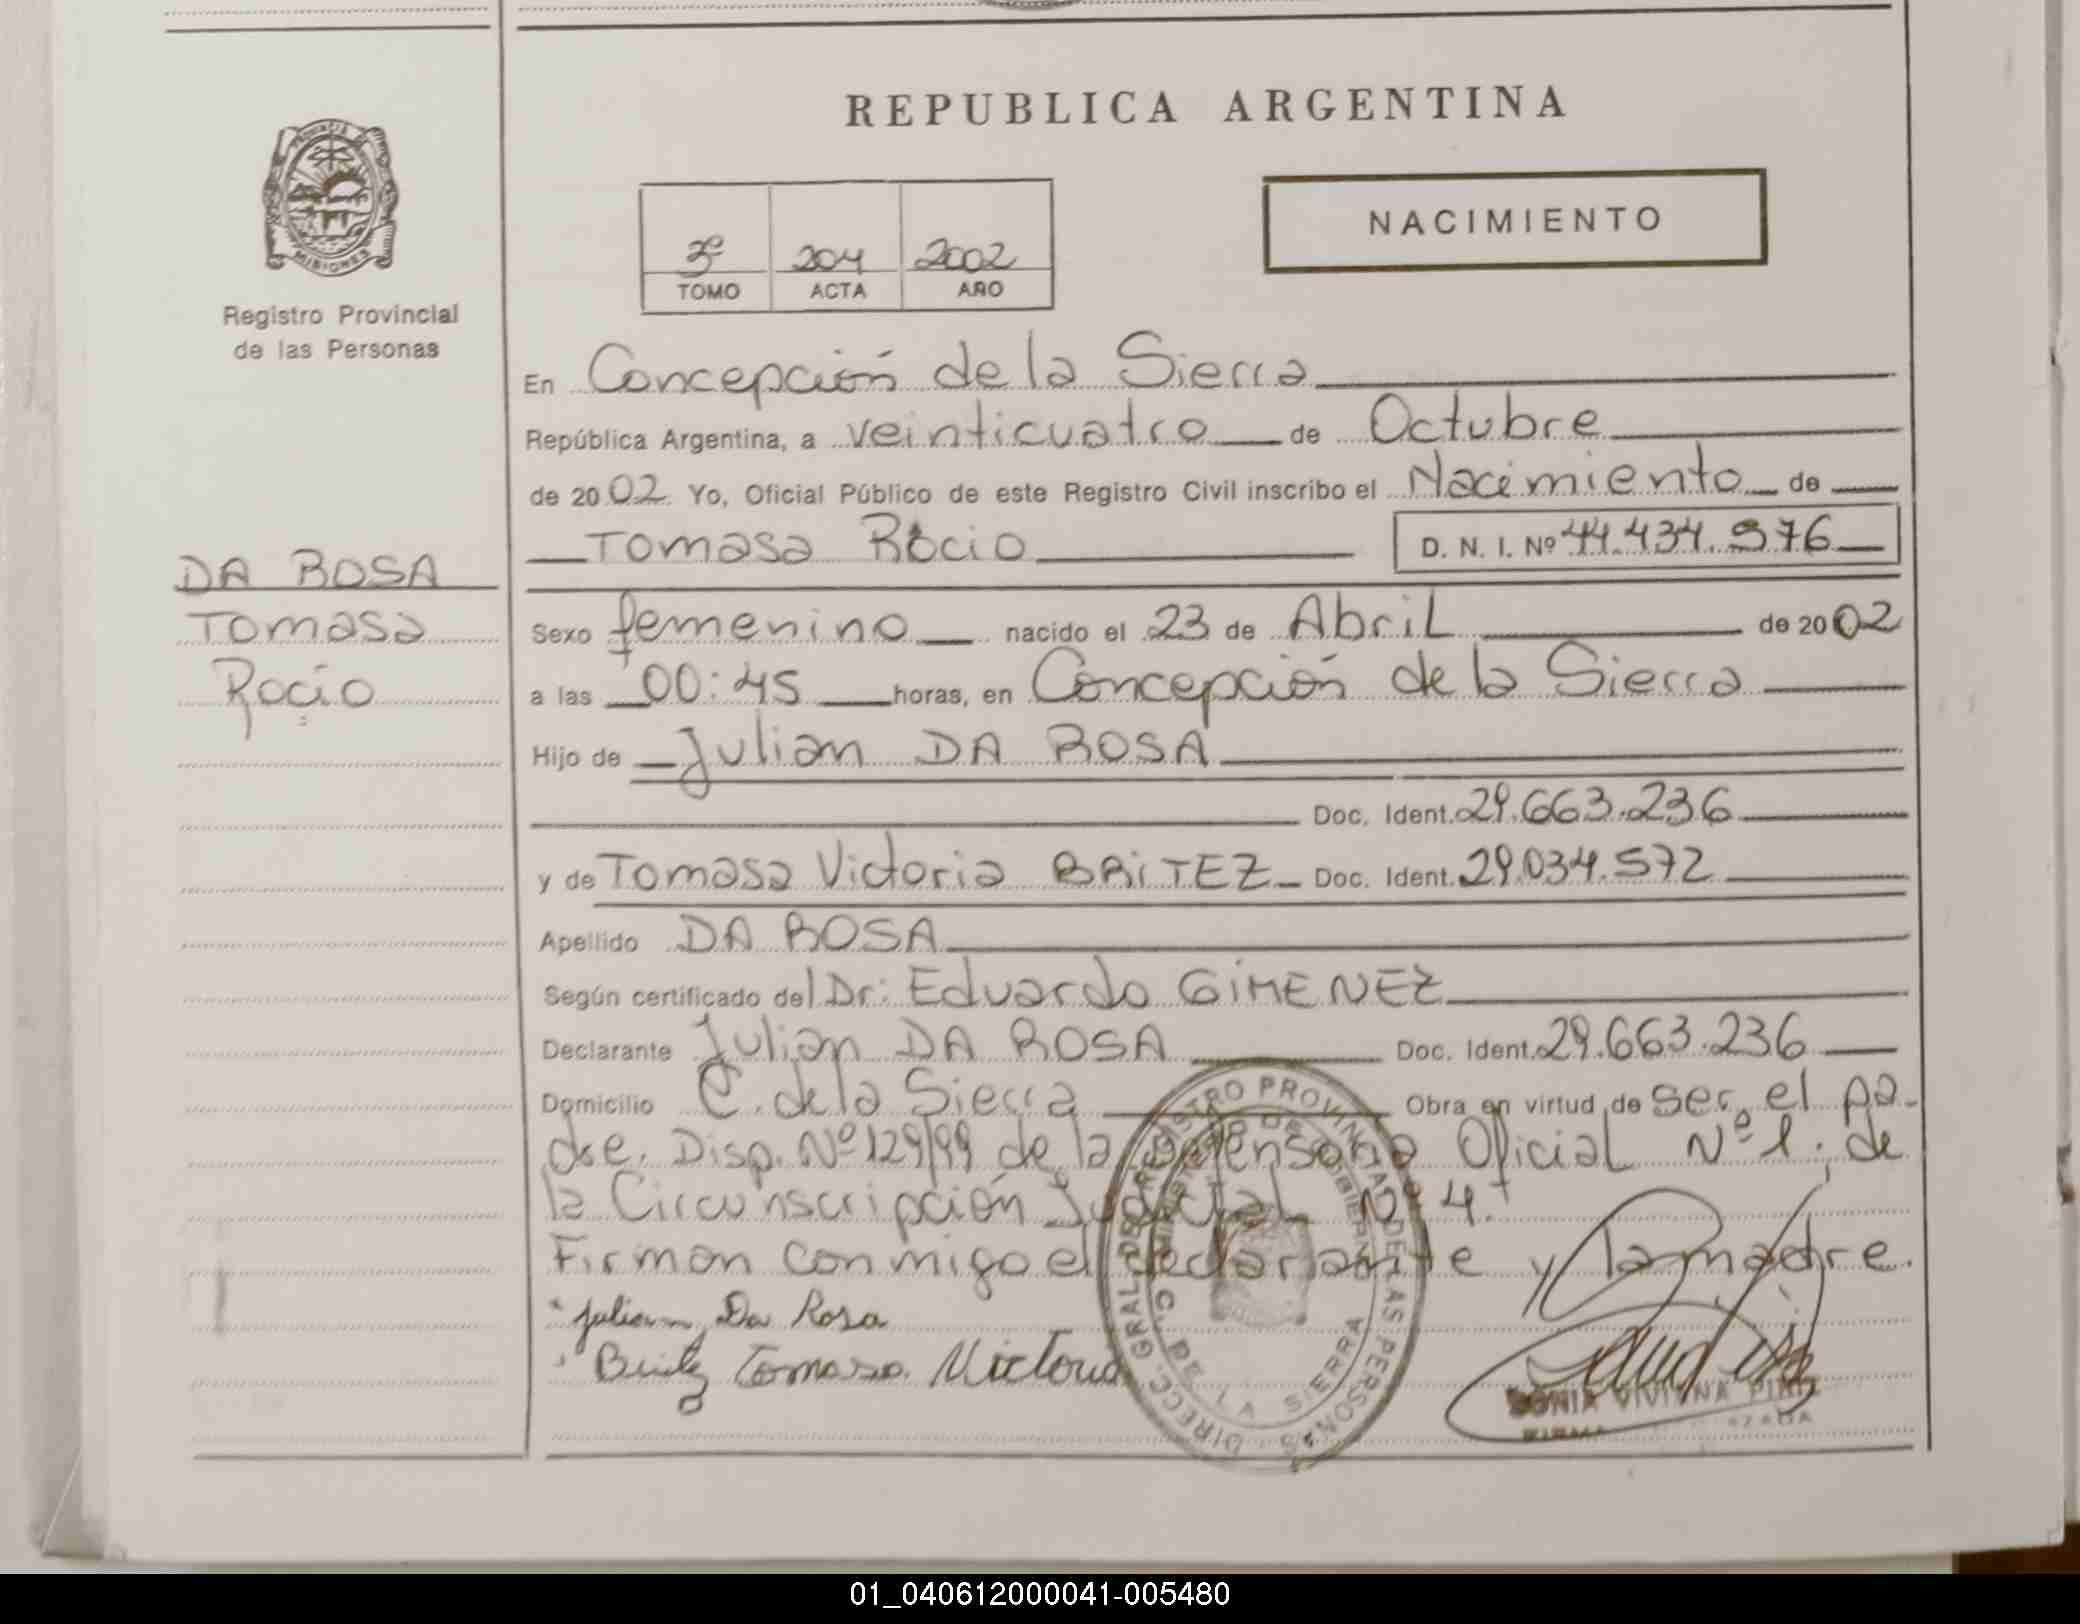 REPUBLICA ARGENTINA
NACIMIENTO
3º 204 2002
TOMO ACTA AÑO
PROVINCIA DE MISIONES
Registro Provincial
de las Personas
DA ROSA
Tomasa
Rocio
En Concepción de la Sierra
República Argentina, a veinticuatro de Octubre
de 2002 Yo, Oficial Público de este Registro Civil inscribo el Nacimiento de
Tomasa Rocio D. N. I. Nº 44.434.976
Sexo femenino nacido el 23 de Abril de 2002
a las 00:45 horas, en Concepción de la Sierra
Hijo de Julian DA ROSA
Doc. Ident. 29.663.236
y de Tomasa Victoria BRITEZ Doc. Ident. 29.034.572
Apellido DA ROSA
Según certificado del Dr: Eduardo GIMENEZ
Declarante Julian DA ROSA Doc. Ident. 29.663.236
Domicilio C. de la Sierra Obra en virtud de ser el pa-
dre. Disp. Nº 129/99 de la Defensoria Oficial Nº 1, de
la Circunscripción Judicial Nº 4.
Firman conmigo el declarante y la madre.
Julian Da Rosa
Britez Tomasa Victoria
DIRECC. GRAL DEL REGISTRO PROVINCIAL DE LAS PERSONAS
C. DE LA SIERRA
SONIA VIVIANA
01_040612000041-005480